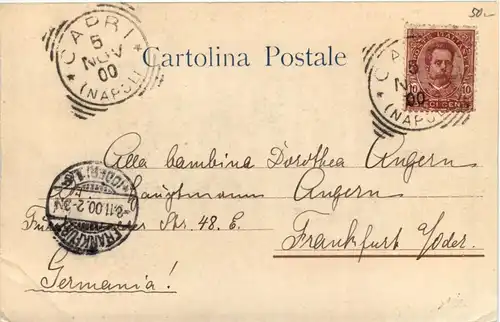 50.-
CAPRI
5
NOV
00
(NAPOLI)
Cartolina Postale
CAPRI
5
NOV
00
(NAPOLI)
10
10
Alla bambina Dorothea Angern
Hauptmann Angern
Str. 48. E.
Frankfurt /Oder.
Germania!
FRANKFURT
8.11.00.2-3N
(ODER) 1.